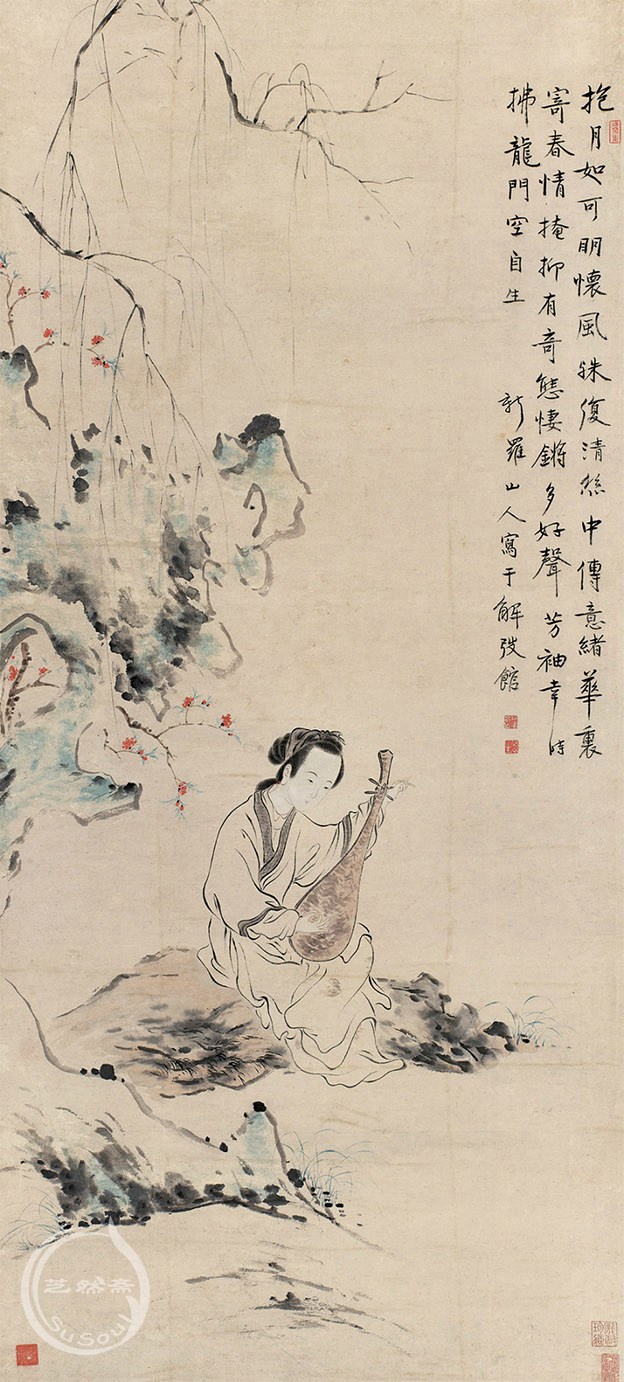 抱月如可明懷風殊復清絲中傳意緒華裏
寄春情掩抑有奇態悽鏘多好聲芳袖幸時
拂龍門空自生 新羅山人寫于解弢館
艺然斋
SuSoul